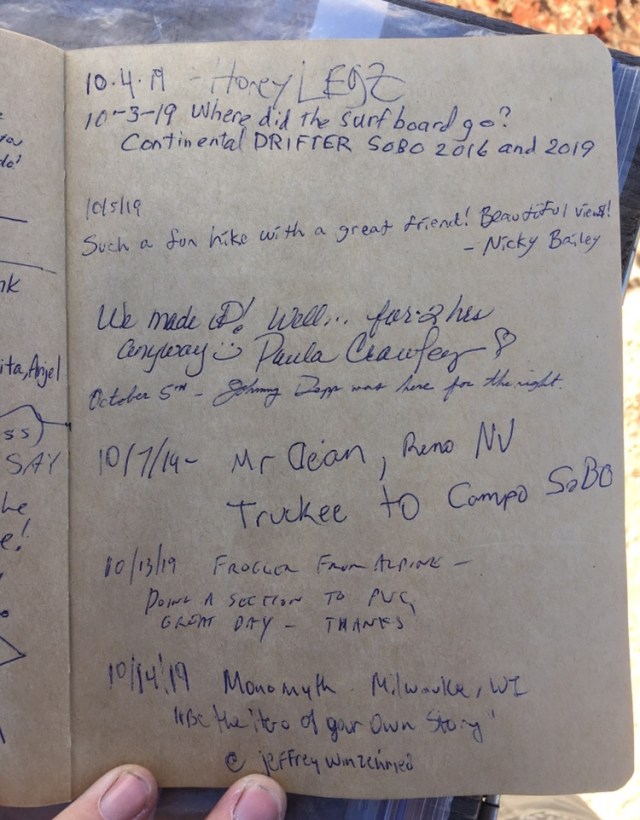 10.4.19 - Honey LEgZ
10-3-19 Where did the surfboard go?
Continental DRIFTER SoBO 2016 and 2019
10/5/19
Such a fun hike with a great friend! Beautiful views!
- Nicky Bailey
We made it! Well... for 2 hrs
anyway Paula Crawley
October 5th - Johnny Depp was here for the night.
10/7/19 - Mr Clean, Reno NV
Truckee to Campo SoBO
10/13/19 FROGGER FROM ALPINE -
DOING A SECTION TO PVC,
GREAT DAY - THANKS
10/14/19 Monomyth Milwaukee, WI
"Be the Hero of your Own Story"
@ jeffreywinzenried
ita, Anjel
ss)
SAY